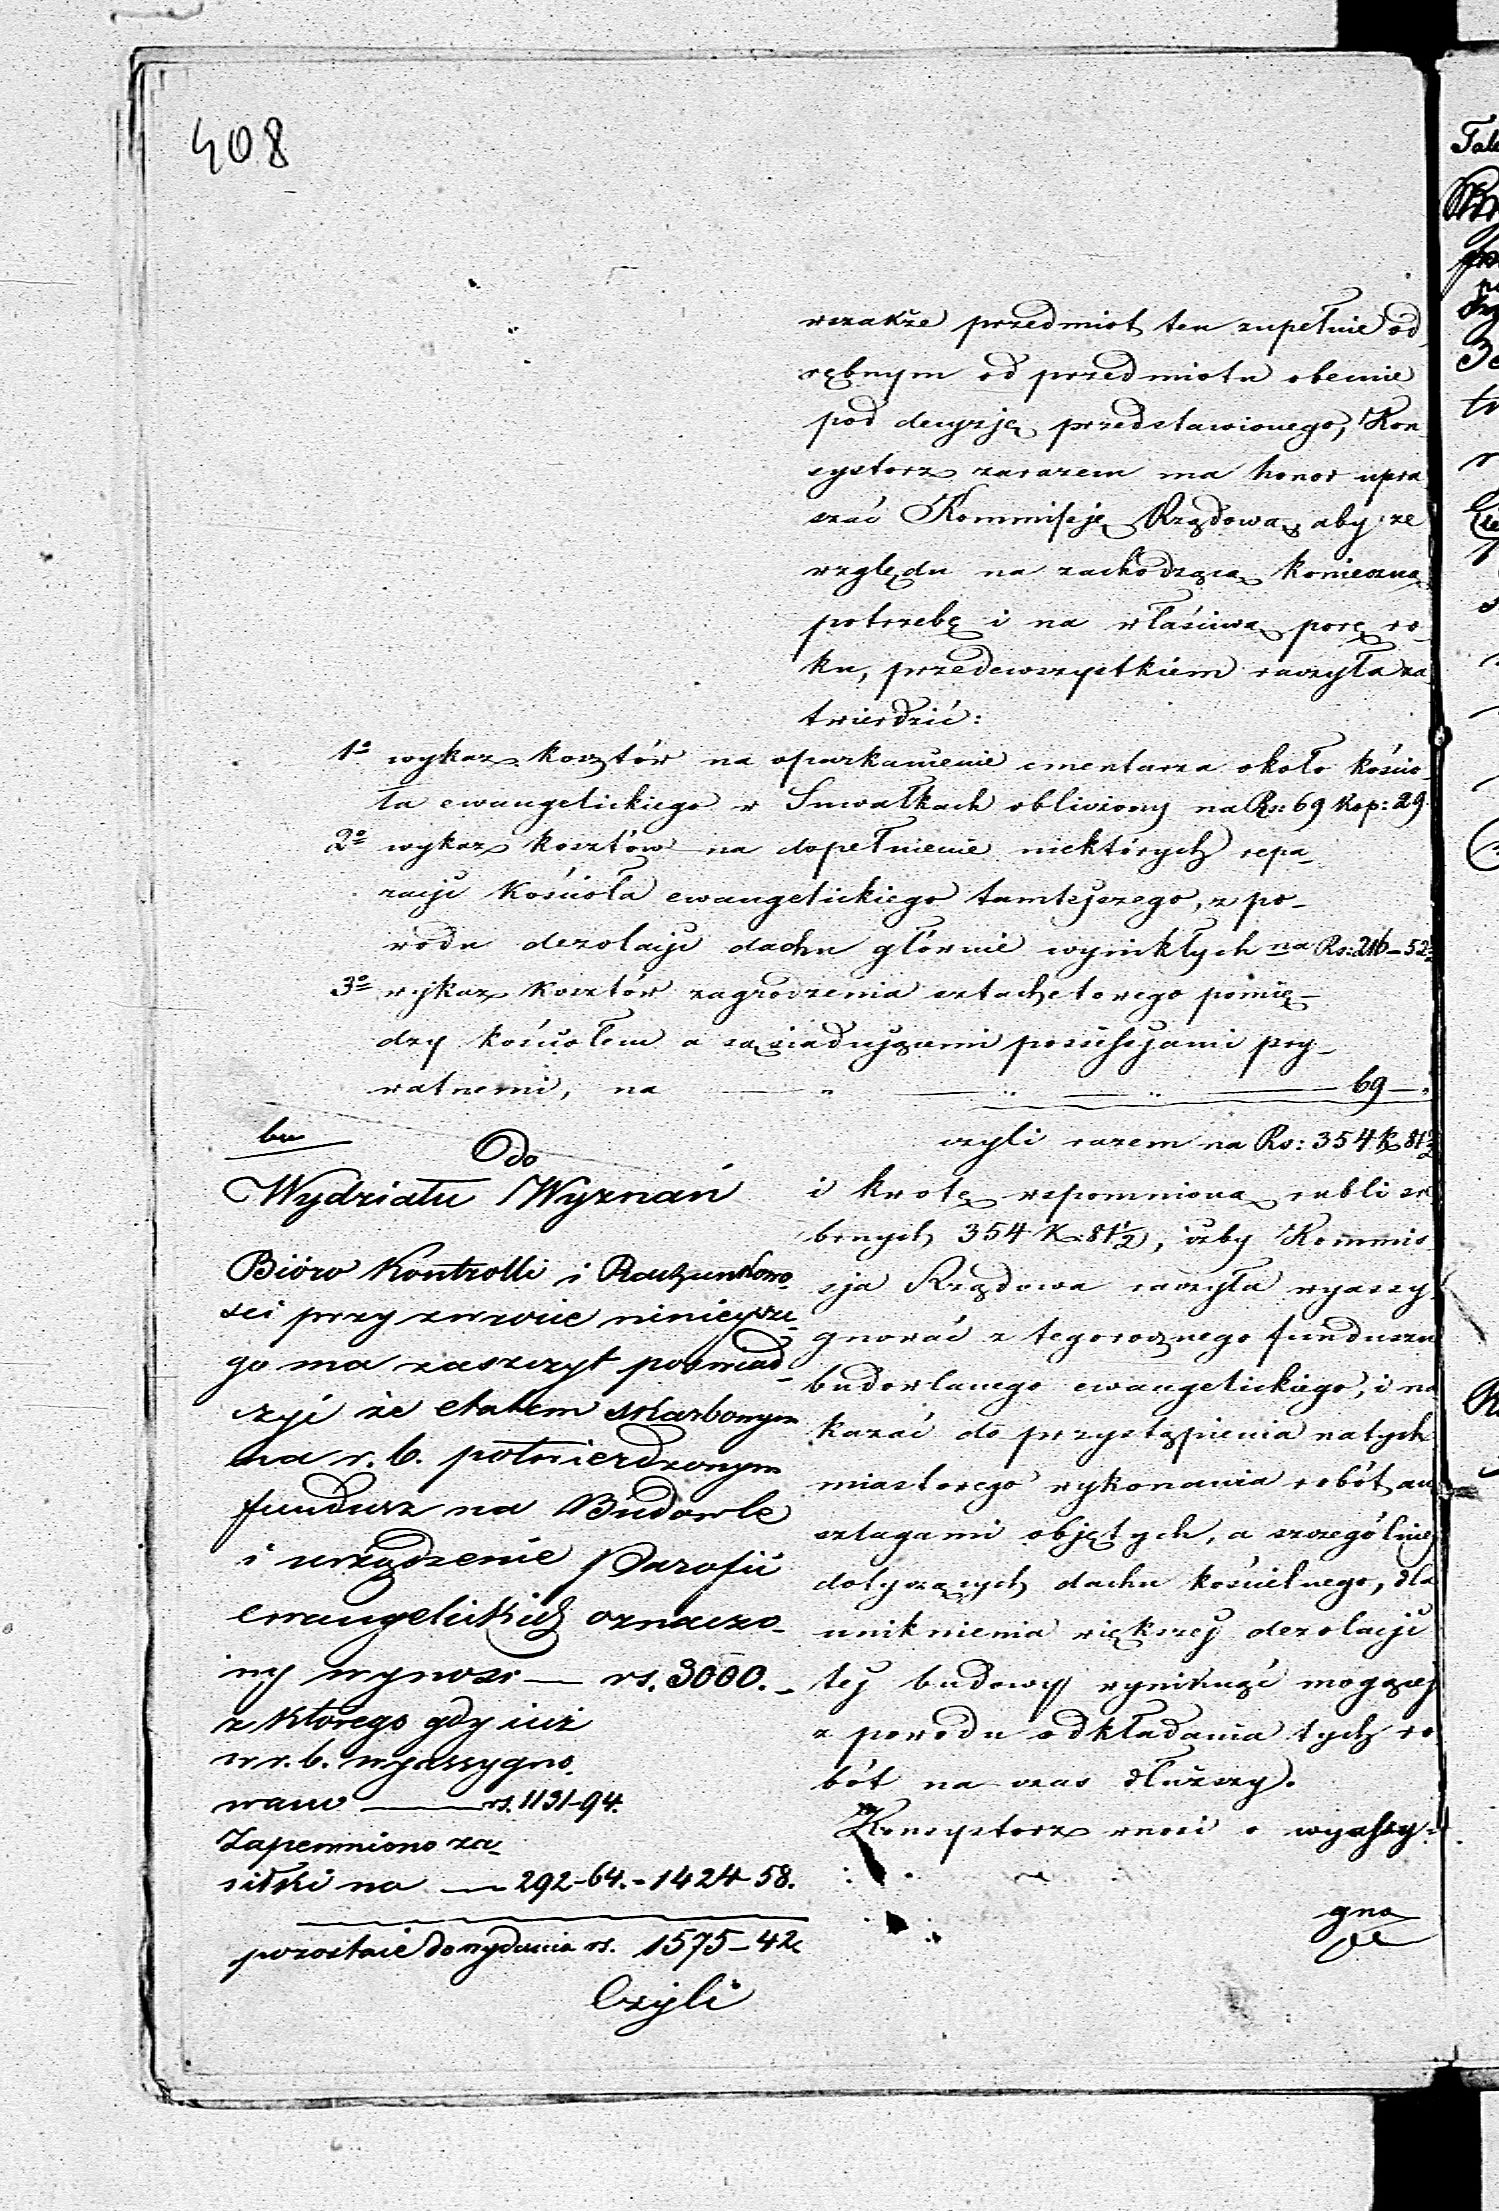 408
wszakże przedmiot ten zupełnie od
rębnym od przedmiotu obecnie
pod decyzję przedstawionego, Kon
systorz zarazem ma honor upra
szać Kommissję Rządową, aby ze
względu na zachodzącą konieczną
potrzebę i na właściwą porę ro-
ku, przedewszystkiem raczyła za
twierdzić:
1o wykaz kosztów na oparkanienie cmentarza około kościo-
ła ewangelickiego w Suwałkach obliczony na Rs: 69 kop: 29.
2o wykaz kosztów na dopełnienie niektórych repa-
racji Kościoła ewangelickiego tamtejszego, z po-
wodu dezolacji dachu głównie wynikłych na Rs: 216-52½
3o wykaz kosztów zagrodzenia sztachetowego pomię-
dzy kościołem a sąsiadującemi possessjami pry-
watnemi, na — " — " — " — 69 — "
czyli razem na Rs: 354 k 81½
i kwotę wspomnioną rubli sre
brnych 354 k. 81½, iżby Kommis-
sja Rządowa raczyła wyassy-
gnować z tegorocznego funduszu
budowlanego ewangelickiego, i na
kazać do przystąpienia natych
miastowego wykonania robót an
szlagami objętych, a szczególniej
dotyczących dachu kościelnego, dla
uniknienia większej dezolacji
tej budowy wyniknąć mogącej
z powodu odkładania tych ro
bót na czas dłuższy.
Konsystorz wnosi o wyassy-
gno
Do
Wydziału Wyznań
Bióro Kontrolli i Rachunkowo-
sci przy zwrocie niniejsze-
go ma zaszczyt poswiad-
czyć że etatem skarbowym
na r. b. potwierdzonym
fundusz na Budowle
i urządzenie Parafii
ewangelickich oznaczo-
ny wynosi — rs. 3000.-
z którego gdy iuż
w r. b. wyassygno-
wano — rs. 1131-94.
Zapewniono za-
siłki na — 292-64.- 1424-58.
pozostaie do wydania rs. 1575-42
Czyli